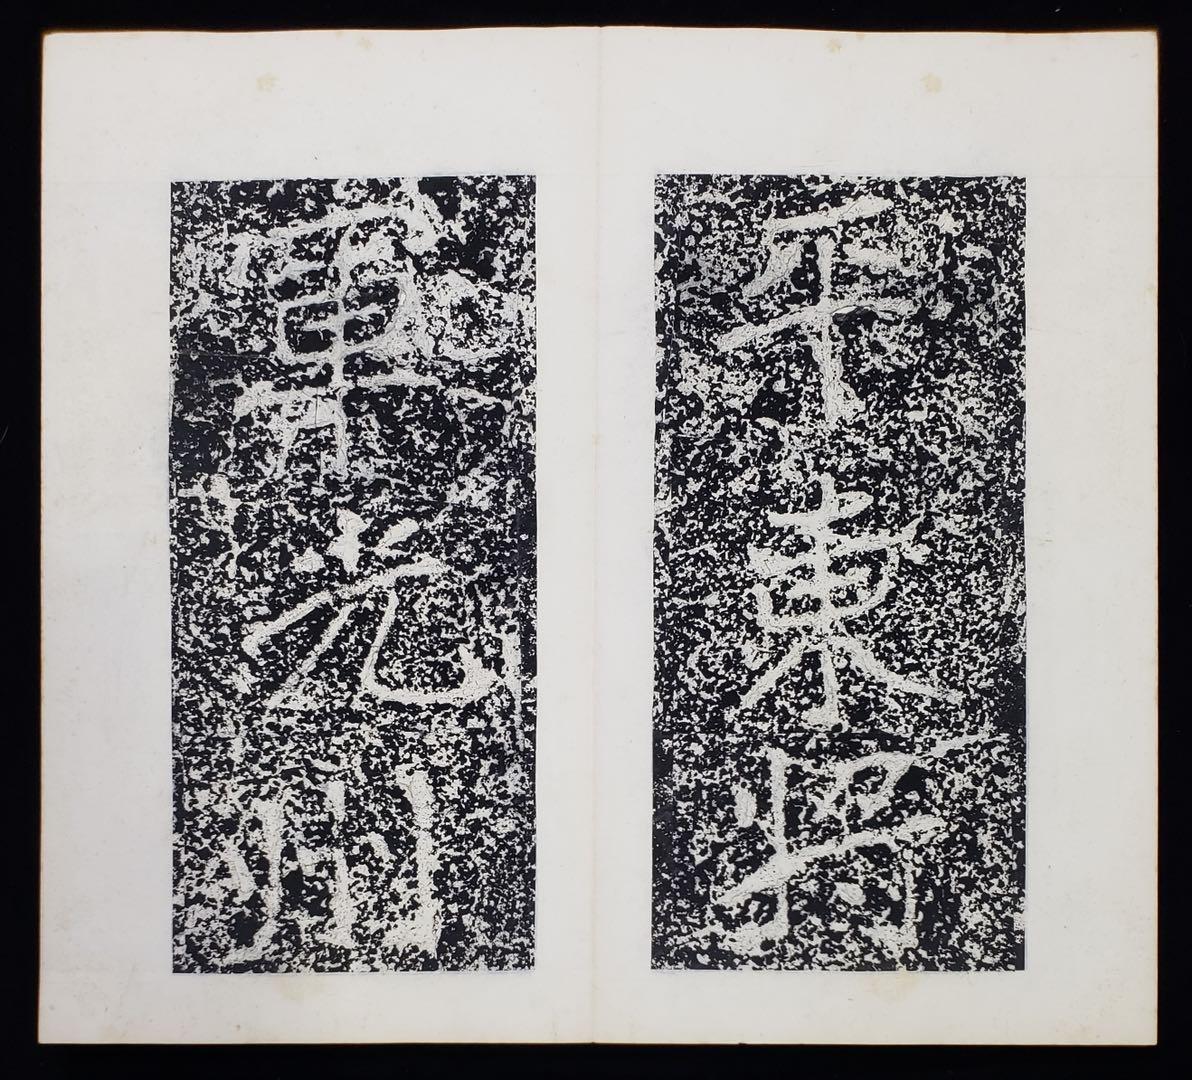 平東將
軍光州